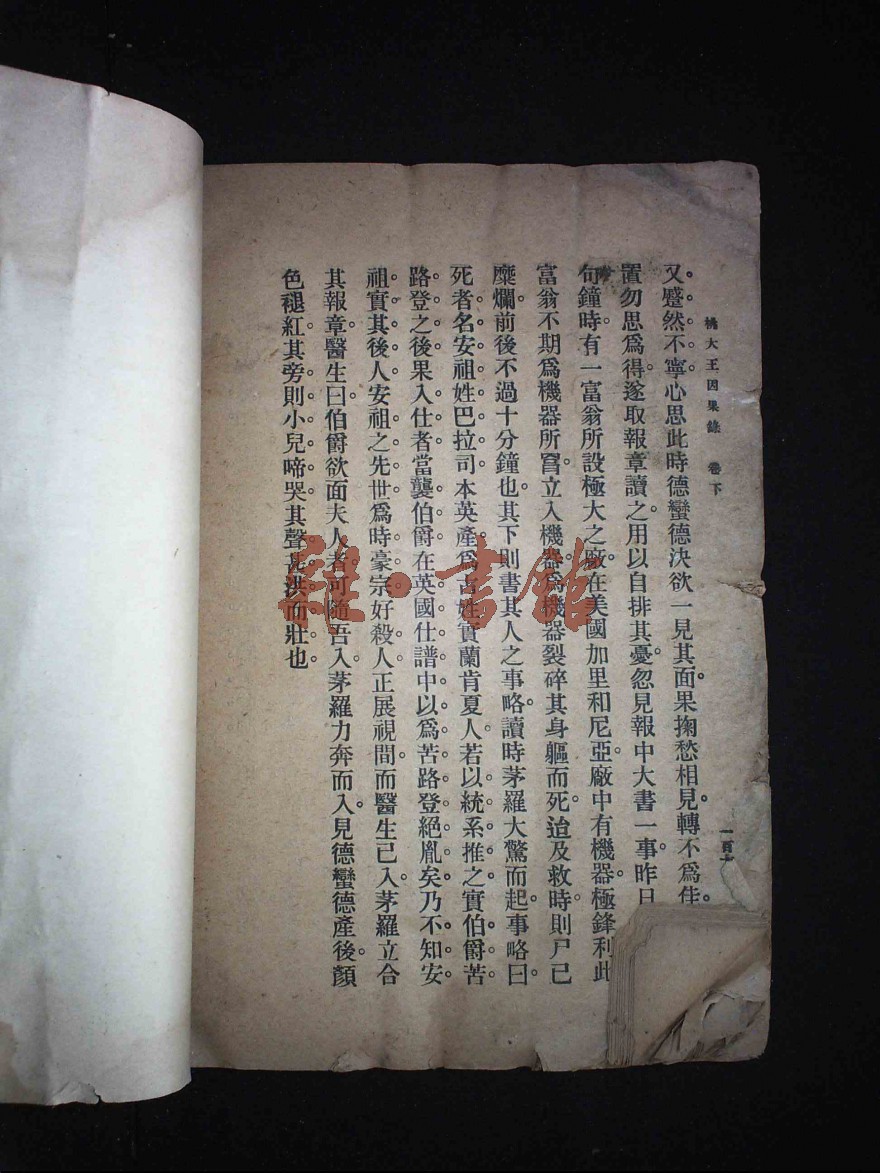 桃大王因果錄　卷下
又蹙然不寧。心思此時德蠻德決欲一見其面。果掬愁相見。轉不爲佳
置勿思爲得。遂取報章讀之。用以自排其憂。忽見報中大書一事。昨日
句鐘時。有一富翁所設極大之廠。在美國加里和尼亞。廠中有機器。極鋒利。此
富翁不期爲機器所。立入機器。爲機器裂碎其身軀而死。迨及救時。則尸已
糜爛。前後不過十分鐘也。其下則書其人之事略。讀時茅羅大驚而起。事略曰。
死者名安祖。姓巴拉司。本英產。爲古姓。實蘭肯夏人。若以統系推之。實伯爵苦
路登之後。果入仕者。當襲伯爵。在英國仕譜中。以爲苦路登絕胤矣。乃不知安
祖實其後人。安祖之先世爲時豪宗。好殺人。正展視間。而醫生已入。茅羅立合
其報章。醫生曰。伯爵欲面夫人者。可隨吾入。茅羅力奔而入。見德蠻德產後。顏
色褪紅。其旁則小兒啼哭。其聲甚洪而壯也。
一百十
雜·書館